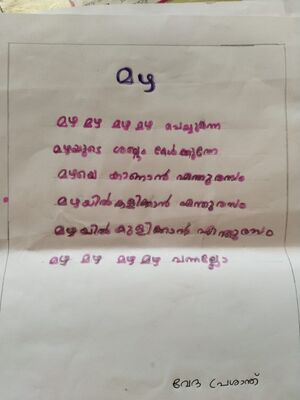 മഴ
മഴ മഴ മഴ മഴ പെയ്യുന്നേ
മഴയുടെ ശബ്ദം കേൾക്കുന്നേ
മഴയെ കാണാൻ എന്തുരസം
മഴയിൽ കളിക്കാൻ എന്തുരസം
മഴയിൽ കുളിക്കാൻ എന്തുരസം
മഴ മഴ മഴ മഴ വന്നല്ലോ
വേദ പ്രശാന്ത്